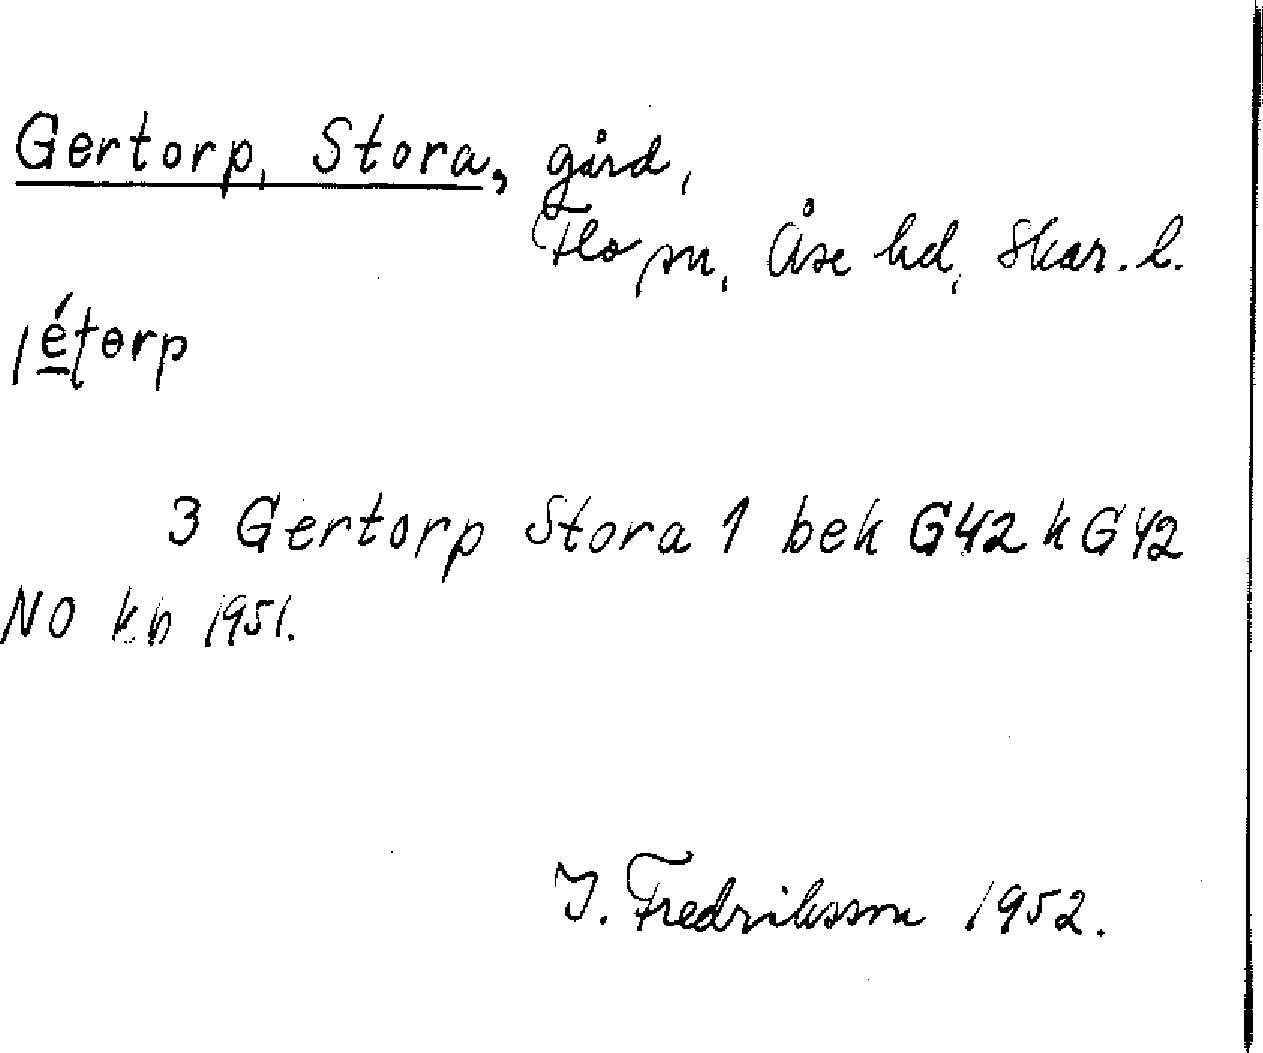 Gertorp, Stora, gård,
Flo sn, Åse hd, Skar. l.
jétɵrp
3 Gertorp Stora 1 bek G42 k G42
NO kb 1951.
J. Fredriksson 1952.